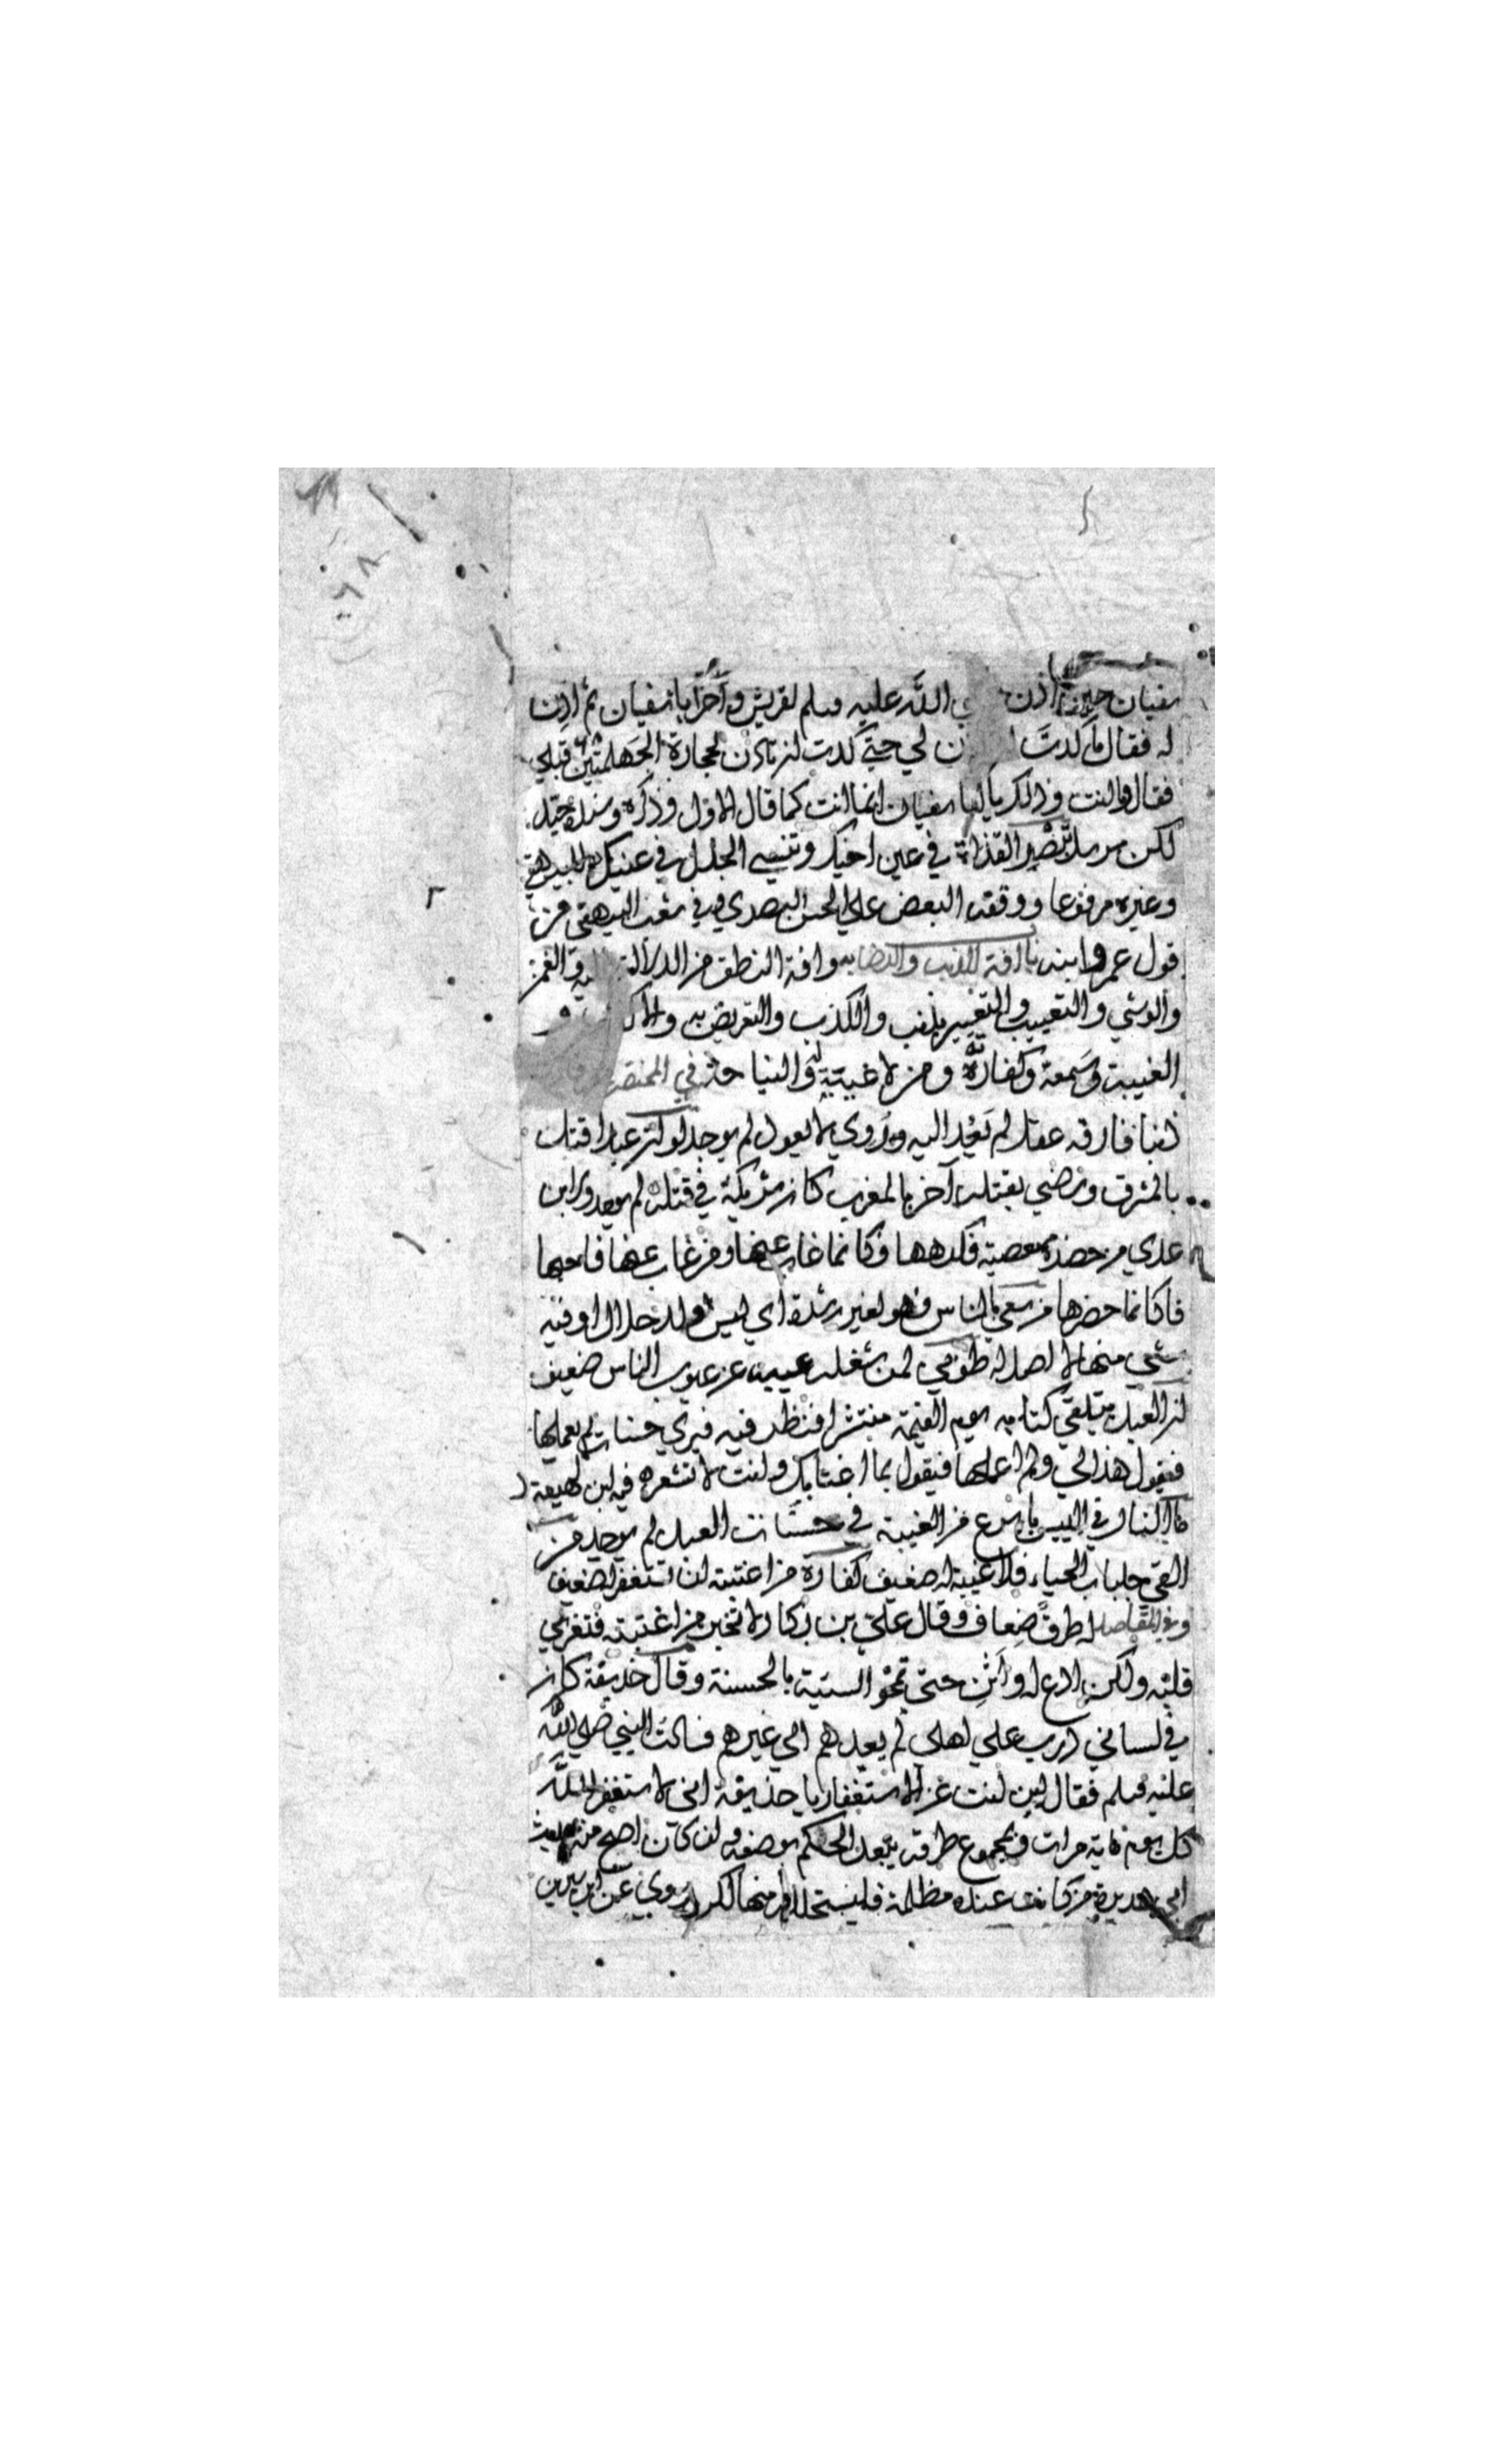 سفيان حين اذن الله عليه وسلم لقريش وأخر ابا سفيان ثم اذن
له فقال ما كدت ن لي حتى كدت ان تأذن لحجارة الجهلمتين قبلي
فقال وما انت وذلك يا ابا سفيان انما انت كما قال الاول وذكره وسنده جيد
لكن مرسل تبصر القذاة في عين اخيك وتنسى الجذل في عنيك للبيهقي
وغيره مرفوعا ووقفه البعض على الحسن البصري وفي شعب البيهقي من
قول عمرو ابنه باب افة الذنب والرضا به وافة النطق من الدلالة اليه والغمز
والوشي والتعييب والتعيير بذنب والكذب والتعريض به و
الغيبة وسمعة وكفارة ومن لا غيبة له والنيا حة في المختصر من قارف
ذنبا فارقه عقل لم يعد اليه وروي لا يعول لم يوجد لو ان عبدا قتل
بالمشرق ورضي بقتله آخر بالمغرب كان شريكه في قتله لم يوجد ولابن
عدي من حضر معصية فكرهها فكانما غاب عنها ومن غاب عنها فاحبها
فكانما حضرها من سعى بالناس فهو لغير رشدة اي ليس ولد حلال او فيه
شيء منها لا اصل له طوبى لمن شغله عيبه عن عيوب الناس ضعيف
ان العبد يتلقى كتابه يوم القيمة منتشرا فنظر فيه فيرى حسنات لم يعملها
فيقول هذا لي ولم اعملها فيقول بما اغتابك وانت لا تشعر فيه ابن لهيعة
ما النار في اليبس باسرع من الغيبة في حسنات العبد لم يوجد من
القى جلباب الحياء فلا غيبة له ضعيف كفارة من اغتبته ان تستغفر له ضعيف
وفي المقاصد له طرق ضعاف وقال علي بن بكار لا تخبر من اغتبته فتغري
قلبه ولكن ادع له واثن حتى تمحو السيئة بالحسنة وقال حذيفة كان
في لساني ذرب على اهلي لم يعدهم الى غيرهم فسالت النبي صلى الله
عليه وسلم فقال اين انت عن الاستغفار يا حذيفة اني لاستغفر الله
كل يوم مائة مرات وبمجموع طرقه يبعد الحكم بوضعه وان كان اصح منه حديث
ابي هريرة من كانت عنده مظلمة فليستحلله منها لكن روي عن ابن سيرين